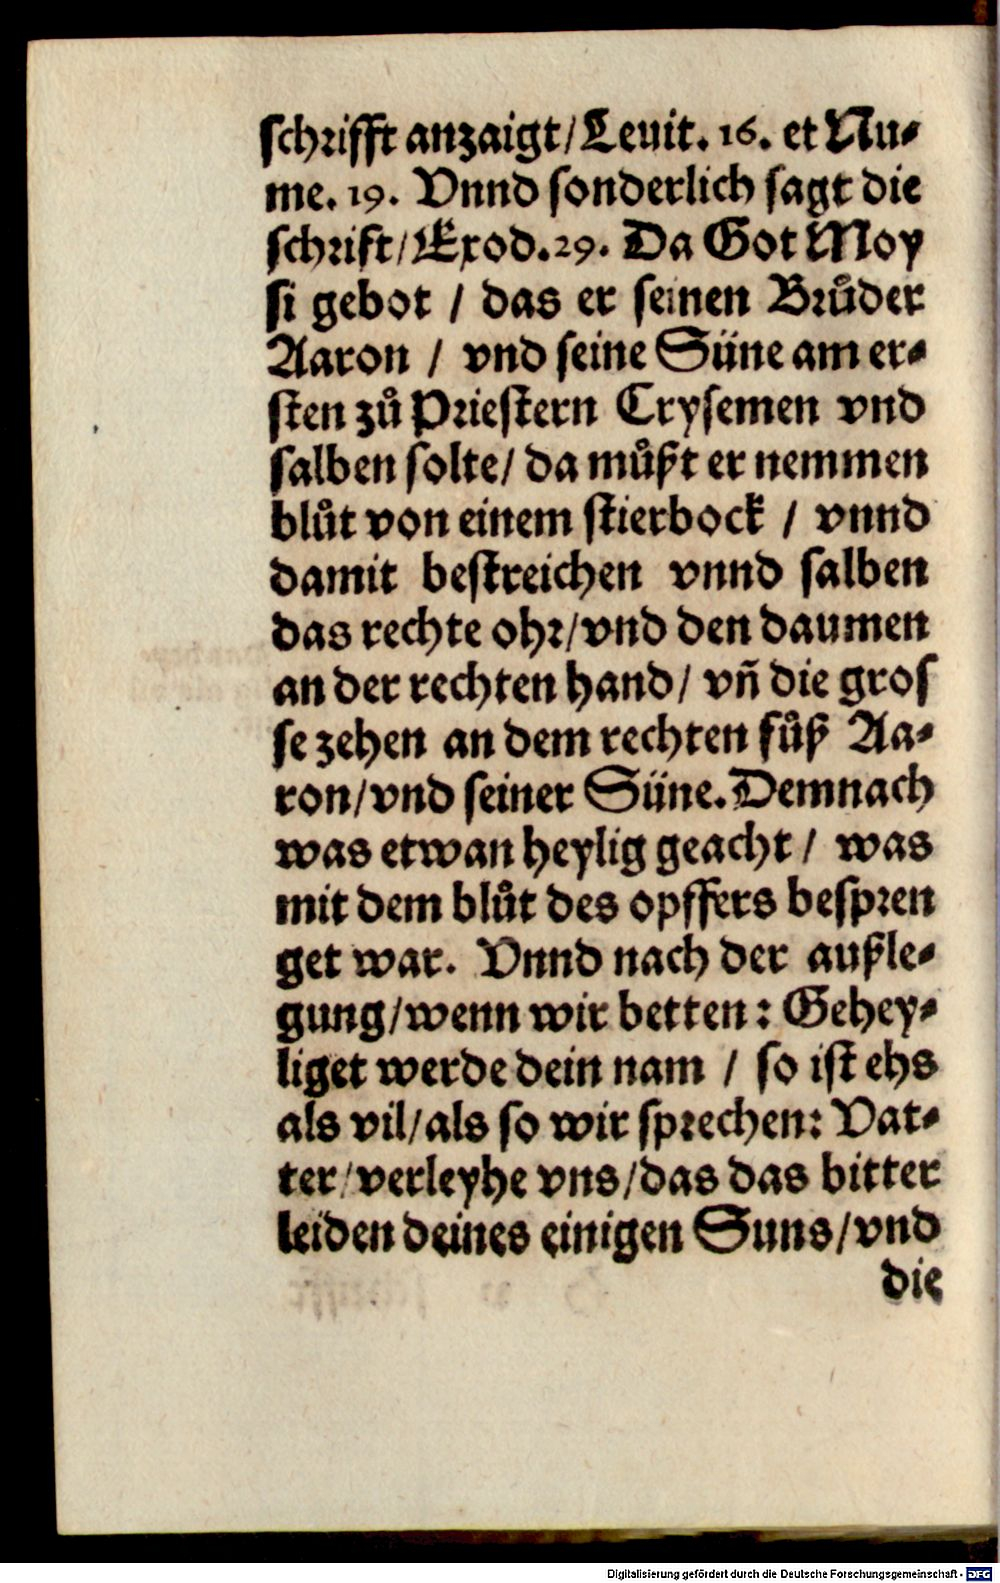 schrifft anzaigt/ Leuit. 16. et Nu-
me. 19. Vnnd sonderlich sagt die
schrift/ Exod. 29. Da Got Moy
si gebot / das er seinen Bruͦder
Aaron / vnd seine Süne am er-
sten zuͦ Priestern Crysemen vnd
salben solte/ da muͦßt er nemmen
bluͦt von einem stierbock / vnnd
damit bestreichen vnnd salben
das rechte ohr/ vnd den daumen
an der rechten hand/ vñ die gros
se zehen an dem rechten fuͦß Aa-
ron/ vnd seiner Süne. Demnach
was etwan heylig geacht / was
mit dem bluͦt des opffers bespren
get war. Vnnd nach der außle-
gung/ wenn wir betten: Gehey-
liget werde dein nam / so ist ehs
als vil/ als so wir sprechen: Vat-
ter/ verleyhe vns/ das das bitter
leiden deines einigen Suns/ vnd
die
Digitalisierung gefördert durch die Deutsche Forschungsgemeinschaft - DFG